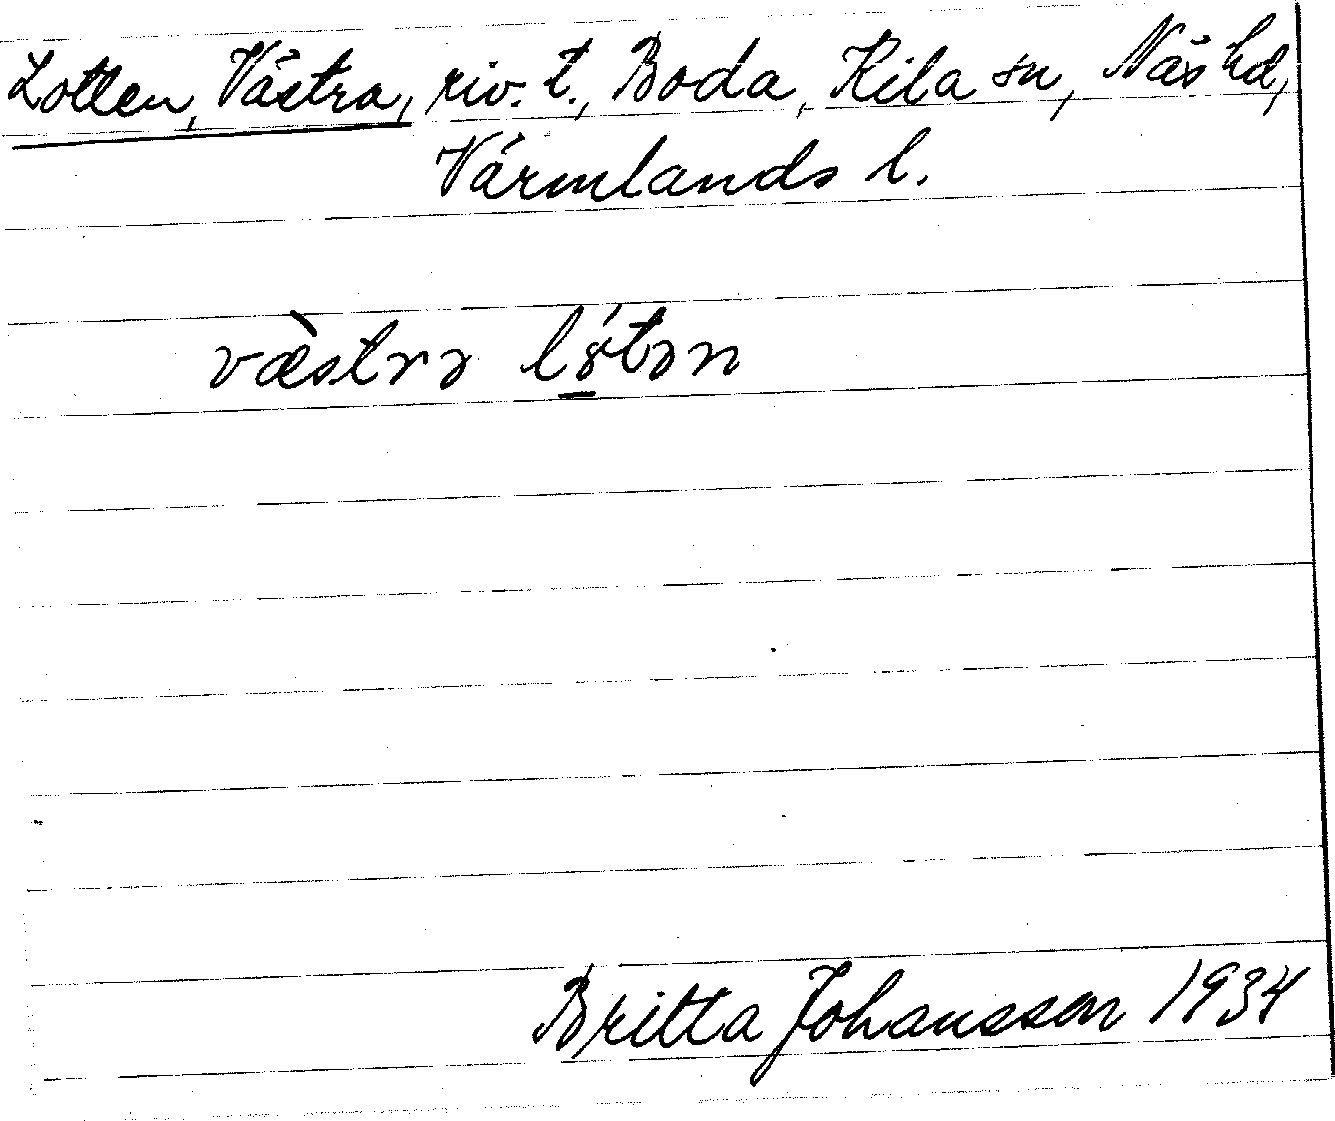 Lotten, Västra, riv. t., Boda, Kila sn, Näs hd,
Värmlands l.
væ̀strə lɤ́tən
Britta Johansson 1934